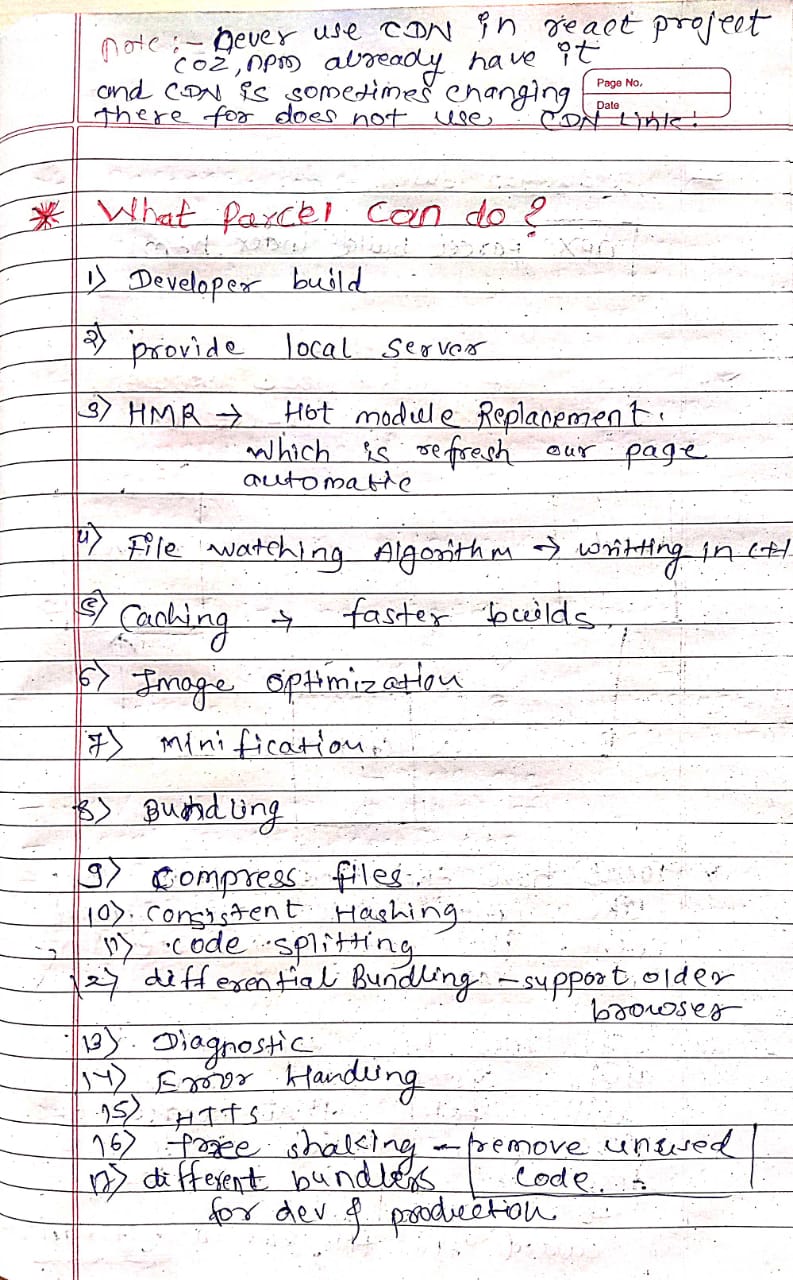 note :- Never use CDN in react project
coz, npm already have it
and CDN is sometimes changing
there for does not use CDN Link!
Page No.
Date
* What Parcel Can do ?
1) Developer build
2) provide local Server
3) HMR → Hot module Replacement.
which is refresh our page
automatic
4) File watching Algorithm → writting in C++
5) Caching → faster builds
6) Image optimization
7) minification
8) Bundling
9) Compress files.
10). Consistent Hashing
11) code splitting
12) differential Bundling - support older
browser
13). Diagnostic
14) Error Handling
15) HTTS
16) tree shaking - remove unused
17) different bundlers code.
for dev & production